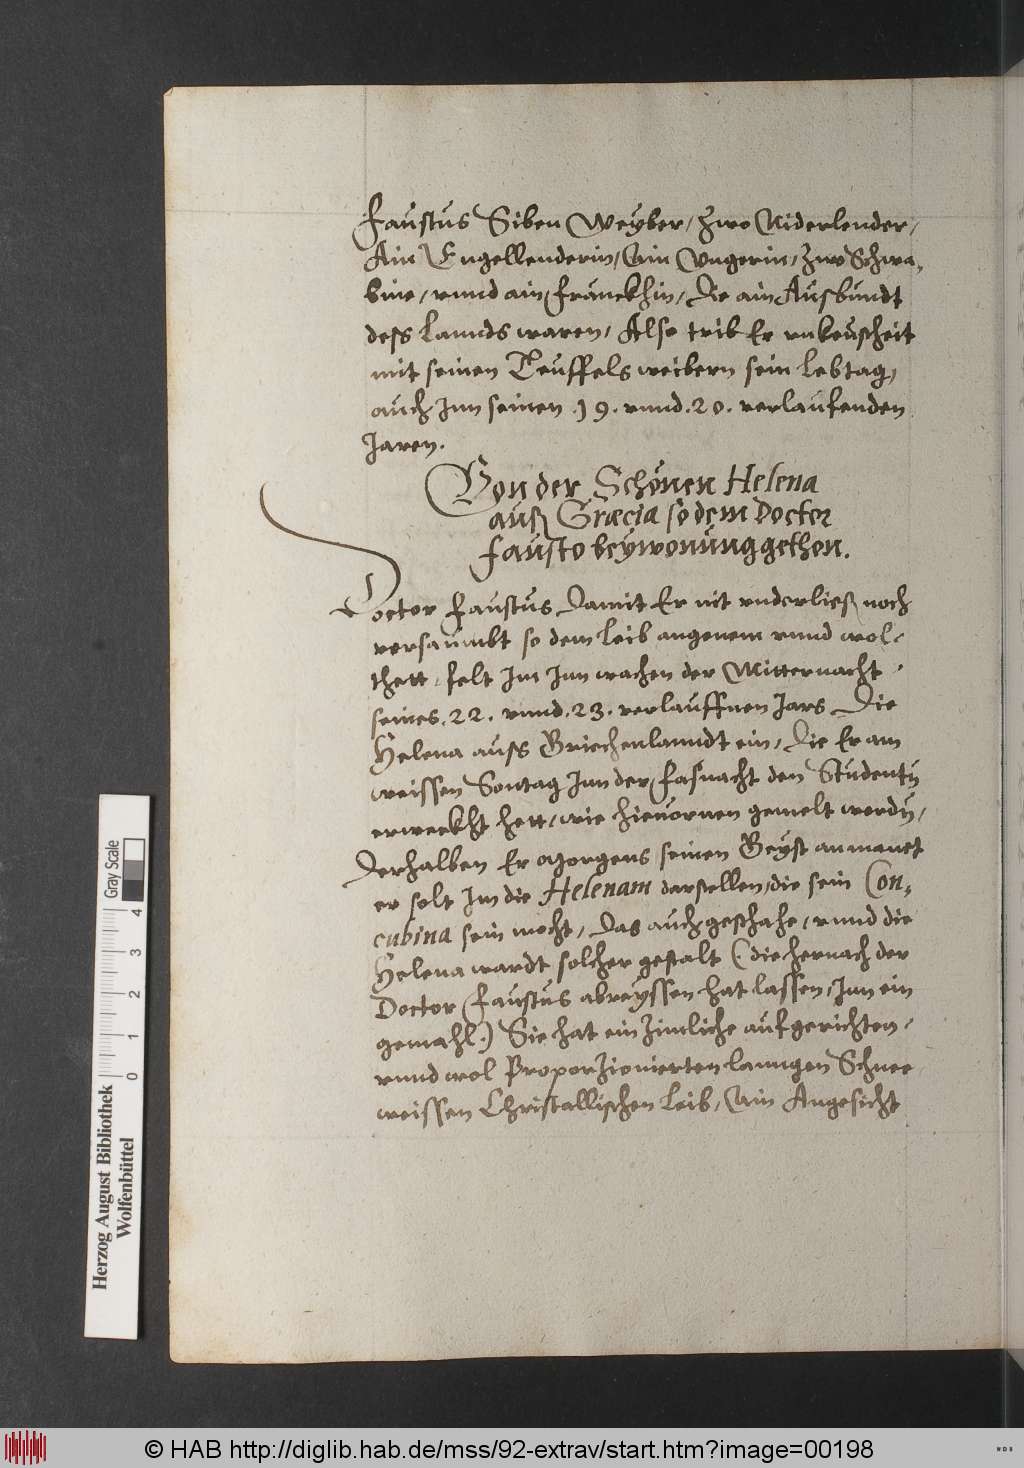 Faustus Siben Weyber / Zwo Niderlender /
Ain Engellenderin / Ain Vngerin / Zwo Schwa,
bine / vnnd ain Franckhin / Die ain Ausbundt
dess Lannds waren / Also trib Er vnkeuscheit
mit seinen Teuffels weibern sein lebtag /
auch Inn seinen .19. vnnd .20. verlaufenden
Jaren.
Von der Schönen Helena
auß Græcia so dem Docter
Fausto beywonung gethon.
Doctor Faustus Damit Er nit vnderließ noch
versaumbt so dem Leib angenem vnnd wol-
thett / felt Im Inn wachen der Mitternacht
seines .22. vnnd .23. verlauffnen Jars Die
Helena auss Griechenlanndt ein / Die Er am
weissen Sontag Inn der Fasnacht den Studenty
erweckht hett / wie hieuornen gemelt wordy /
Derhalben Er Morgens seinen Geyst anmanet
er solt Im die Helenam darstellen / die sein Con,
cubina sein mecht / Das auch geschahe / vnnd die
Helena wardt solcher gestalt (die hernach der
Doctor Faustus abreyssen hat lassen / Inn ein
gemahl.) Sie hat ein Zimliche aufgerichten /
vnnd wol Proporzionierten lanngen Schnee
weissen Christallischen Leib / Ain Angesicht
Herzog August Bibliothek
Wolfenbüttel
Gray Scale
0 1 2 3 4
© HAB http://diglib.hab.de/mss/92-extrav/start.htm?image=00198